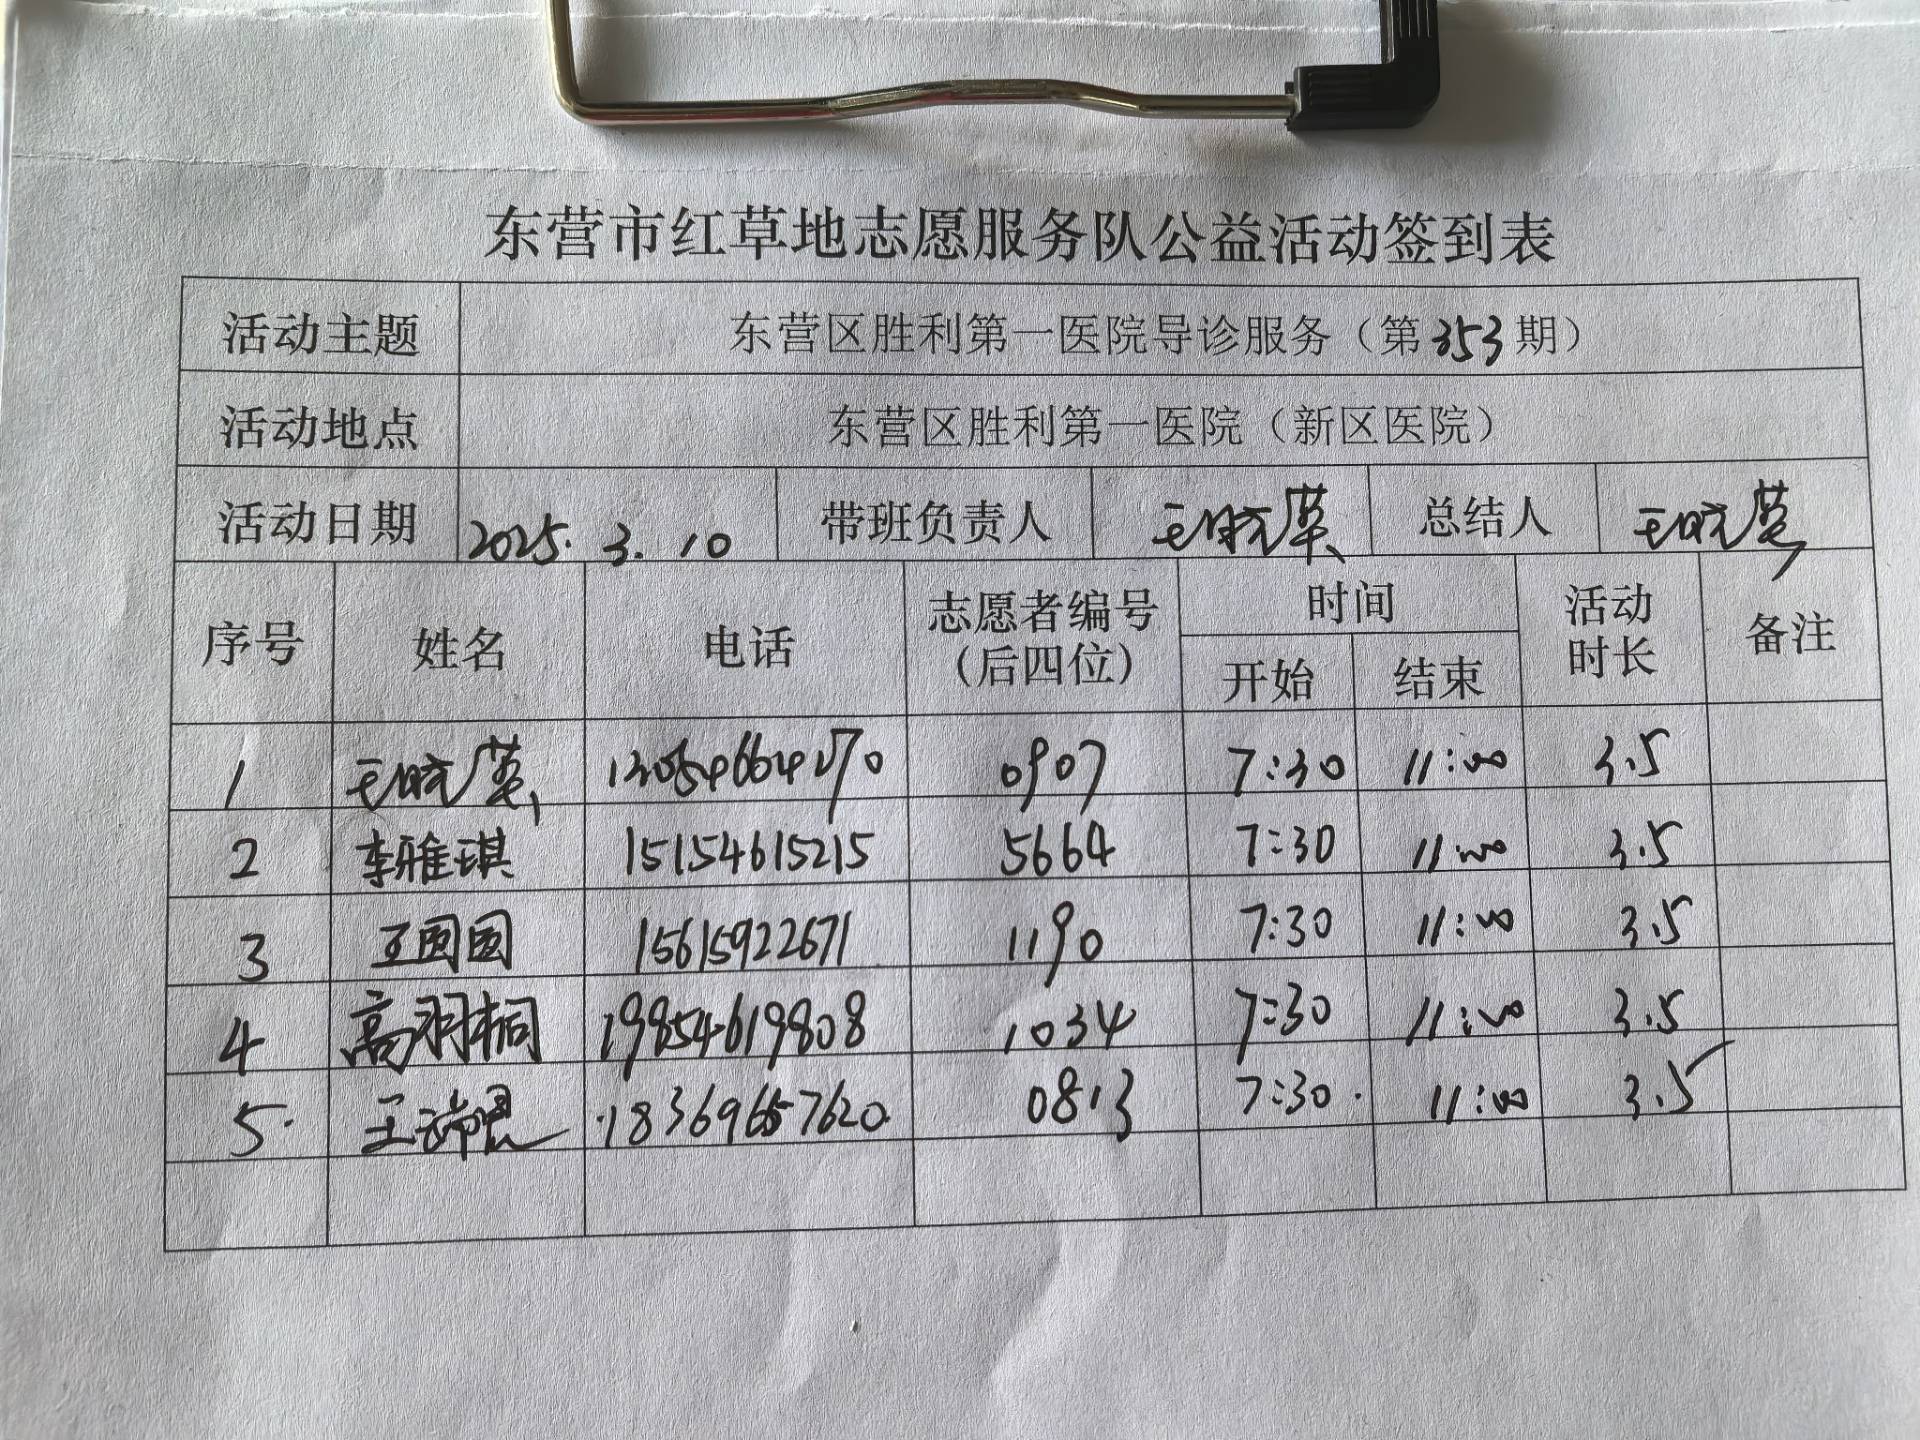 东营市红草地志愿服务队公益活动签到表
活动主题 东营区胜利第一医院导诊服务（第353期）
活动地点 东营区胜利第一医院（新区医院）
活动日期 2025.3.10 带班负责人 王晓英 总结人 王晓英
序号 姓名 电话 志愿者编号（后四位） 时间 开始 结束 活动时长 备注
1 王晓英 0907 7:30 11:00 3.5
2 李雅琪 15154615215 5664 7:30 11:00 3.5
3 王圆圆 15615922671 1190 7:30 11:00 3.5
4 高羽桐 19854619808 1034 7:30 11:00 3.5
5. 王 18369657620 0813 7:30. 11:00 3.5